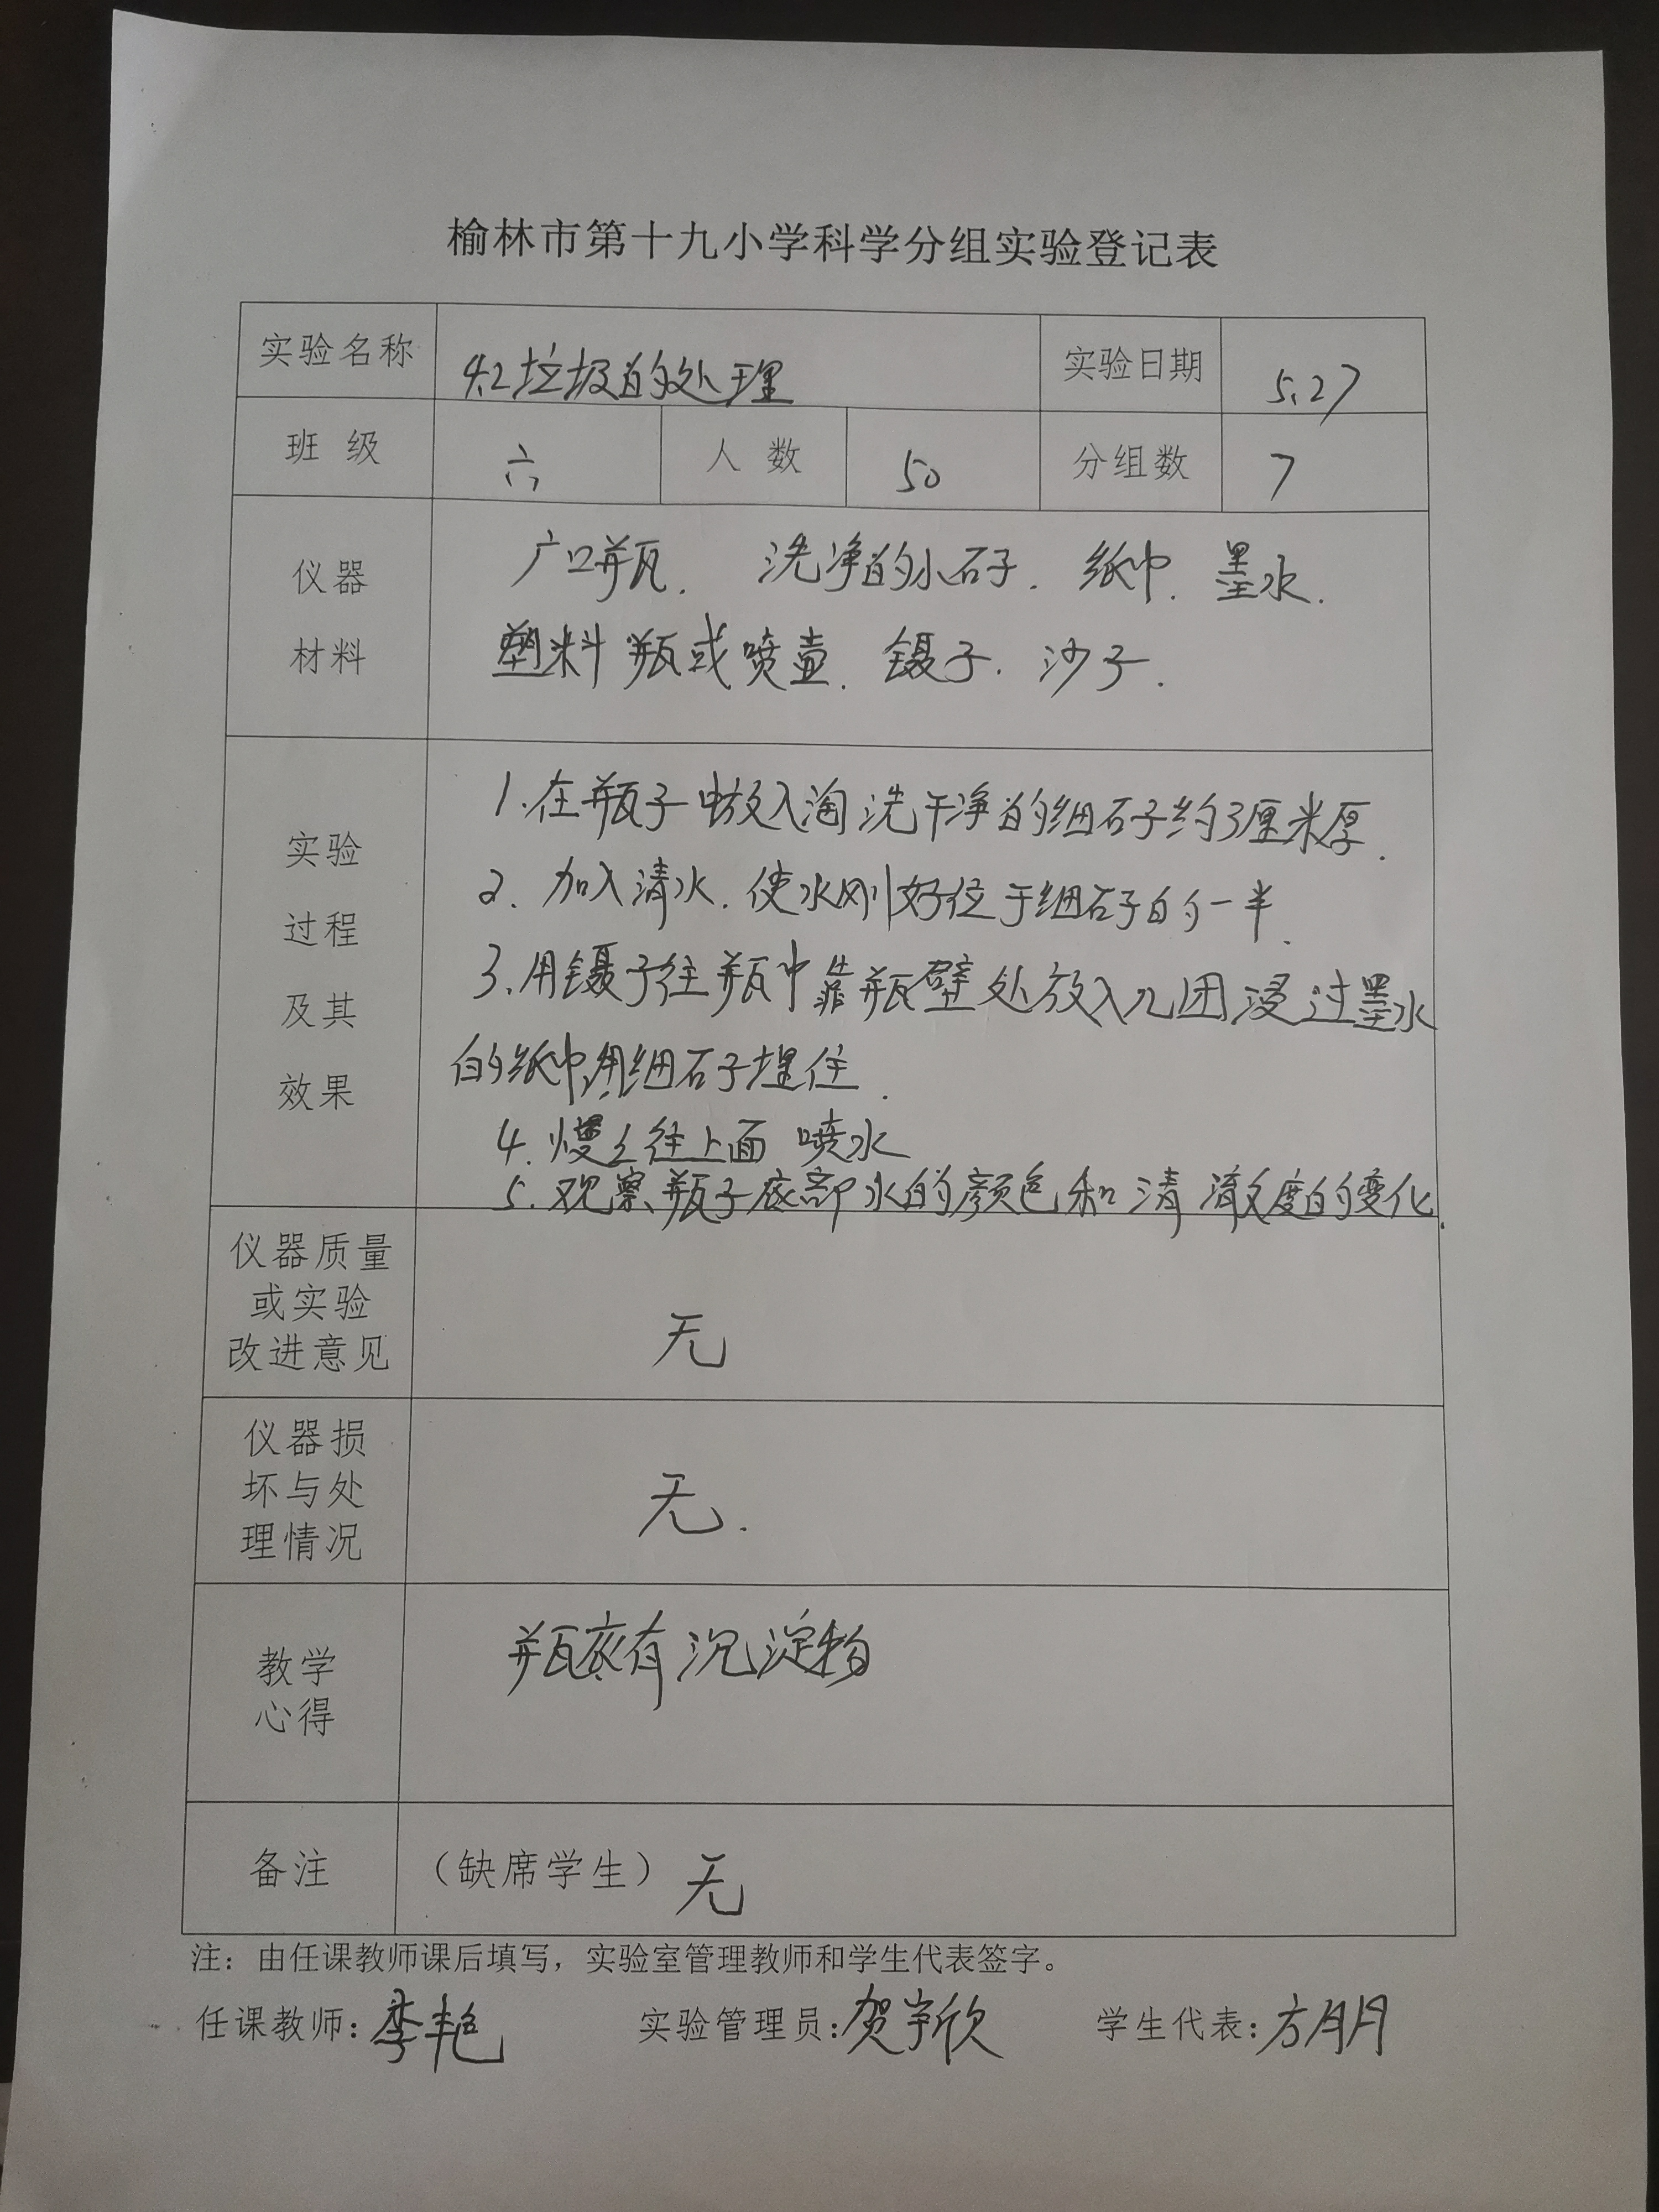 榆林市第十九小学科学分组实验登记表
实验名称 4.2垃圾的处理 实验日期 5.27
班 级 六 人 数 50 分组数 7
仪器
材料
广口瓶. 洗净的小石子. 纸巾. 墨水.
塑料瓶或喷壶. 镊子. 沙子.
实验
过程
及其
效果
1.在瓶子中放入淘洗干净的细石子约3厘米厚.
2. 加入清水. 使水刚好位于细石子的一半.
3.用镊子往瓶中靠瓶壁处放入几团浸过墨水
的纸巾,用细石子埋住.
4.慢慢往上面喷水
5.观察瓶子底部水的颜色和清澈度的变化.
仪器质量
或实验
改进意见
无
仪器损
坏与处
理情况
无.
教学
心得
瓶底有沉淀物
备注 （缺席学生）无
注：由任课教师课后填写，实验室管理教师和学生代表签字。
任课教师：李艳 实验管理员：贺宇欣 学生代表：方朋